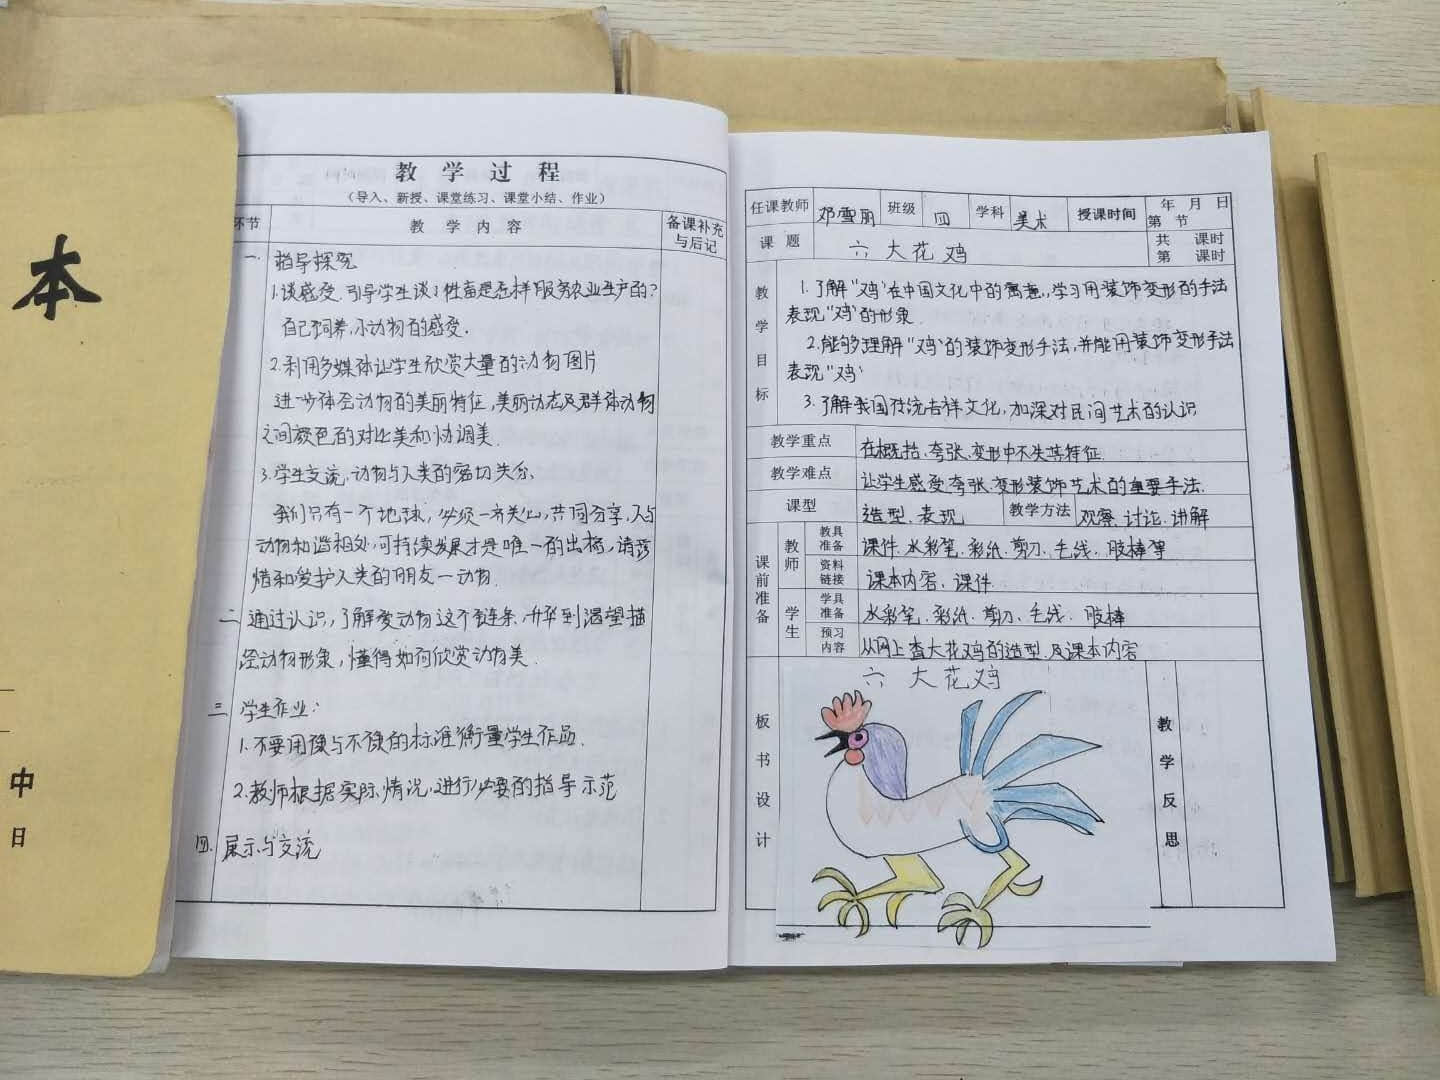 本
中
日
教 学 过 程
（导入、新授、课堂练习、课堂小结、作业）
环节
教 学 内 容
备课补充
与后记
一. 指导探究
1.谈感受.引导学生谈谈牲畜是怎样服务农业生产的?
自己饲养小动物的感受.
2.利用多媒体让学生欣赏大量的动物图片
进一步体会动物的美丽特征,美丽动态及群体动物
之间颜色的对比美和协调美.
3.学生交流,动物与人类的密切关系.
我们只有一个地球,必须一齐关心,共同分享,人与
动物和谐相处,可持续发展才是唯一的出格,请珍
惜和爱护人类的朋友—动物.
二 通过认识,了解爱动物这个链条,升华到渴望描
绘动物形象,懂得如何欣赏动物美.
三 学生作业:
1.不要用像与不像的标准衡量学生作品.
2.教师根据实际情况,进行必要的指导示范
四. 展示与交流
任课教师 邓雪丽 班级 四 学科 美术 授课时间 年 月 日
第 节
课 题 六 大花鸡 共 课时
第 课时
教学目标
1.了解"鸡"在中国文化中的寓意,学习用装饰变形的手法
表现"鸡"的形象.
2.能够理解"鸡"的装饰变形手法,并能用装饰变形手法
表现"鸡"
3.了解我国传统吉祥文化,加深对民间艺术的认识
教学重点 在概括、夸张、变形中不失其特征.
教学难点 让学生感受夸张、变形装饰艺术的重要手法.
课型 造型、表现 教学方法 观察、讨论、讲解
课前准备
教师
教具
准备
课件、水彩笔、彩纸、剪刀、毛线、胶棒等
资料
链接
课本内容、课件
学生
学具
准备
水彩笔、彩纸、剪刀、毛线、胶棒
预习
内容
从网上查大花鸡的造型及课本内容
板书设计
六 大花鸡
教学反思